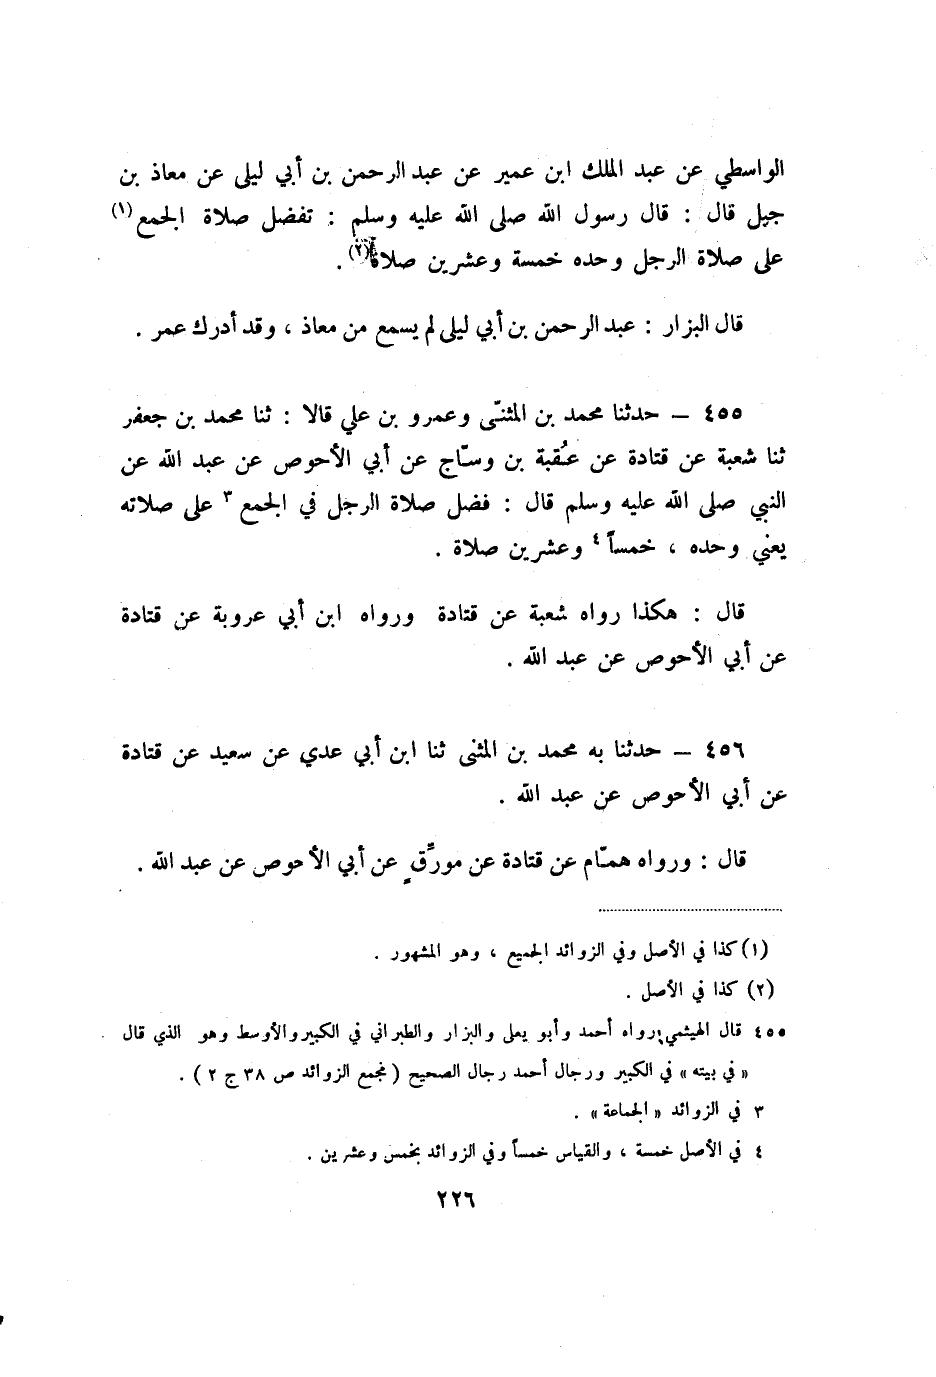 الواسطي عن عبد الملك ابن عمير عن عبد الرحمن بن أبي ليلى عن معاذ بن
جبل قال : قال رسول الله صلى الله عليه وسلم : تفضل صلاة الجمع (١)
على صلاة الرجل وحده خمسة وعشرين صلاة (٢) .
قال البزار : عبد الرحمن بن أبي ليلى لم يسمع من معاذ ، وقد أدرك عمر .
٤٥٥ – حدثنا محمد بن المثنّى وعمرو بن علي قالا : ثنا محمد بن جعفر
ثنا شعبة عن قتادة عن عُقبة بن وسّاج عن أبي الأحوص عن عبد الله عن
النبي صلى الله عليه وسلم قال : فضل صلاة الرجل في الجمع ٣ على صلاته
يعني وحده ، خمساً ٤ وعشرين صلاة .
قال : هكذا رواه شعبة عن قتادة ورواه ابن أبي عروبة عن قتادة
عن أبي الأحوص عن عبد الله .
٤٥٦ – حدثنا به محمد بن المثنى ثنا ابن أبي عدي عن سعيد عن قتادة
عن أبي الأحوص عن عبد الله .
قال : ورواه همّام عن قتادة عن مورِّقٍ عن أبي الأحوص عن عبد الله .
(١) كذا في الأصل وفي الزوائد الجميع ، وهو المشهور .
(٢) كذا في الأصل .
٤٥٥ قال الهيثمي رواه أحمد وأبو يعلى والبزار والطبراني في الكبير والأوسط وهو الذي قال
« في بيته » في الكبير ورجال أحمد رجال الصحيح ( مجمع الزوائد ص ٣٨ ج ٢ ) .
٣ في الزوائد « الجماعة » .
٤ في الأصل خمسة ، والقياس خمساً وفي الزوائد بخمس وعشرين .
٢٢٦